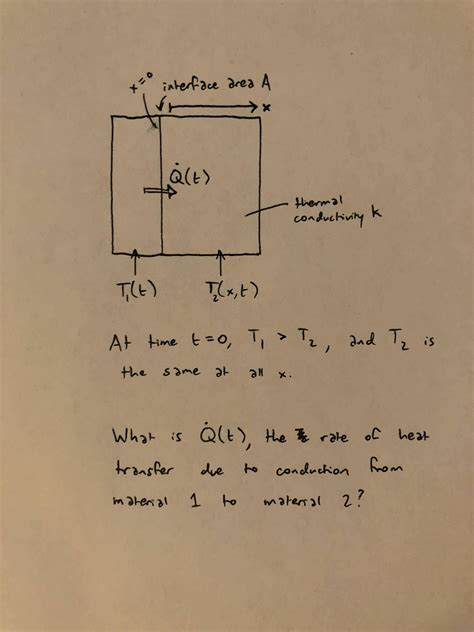 x=0
interface area A
x
Q̇(t)
thermal
conductivity k
T₁(t)
T₂(x,t)
At time t=0, T₁ > T₂, and T₂ is
the same at all x.
What is Q̇(t), the rate of heat
transfer due to conduction from
material 1 to material 2?